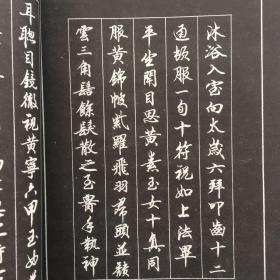 沐浴入室向太歲六拜叩齒十二
通頓服一旬十符視如上法畢
平坐閉目思黃素玉女十真同
服黃錦帔紫羅飛羽裙頭並頹
雲三角髻餘髮散之至齊手執神
耳聰目鏡徹視黃寧六甲玉女